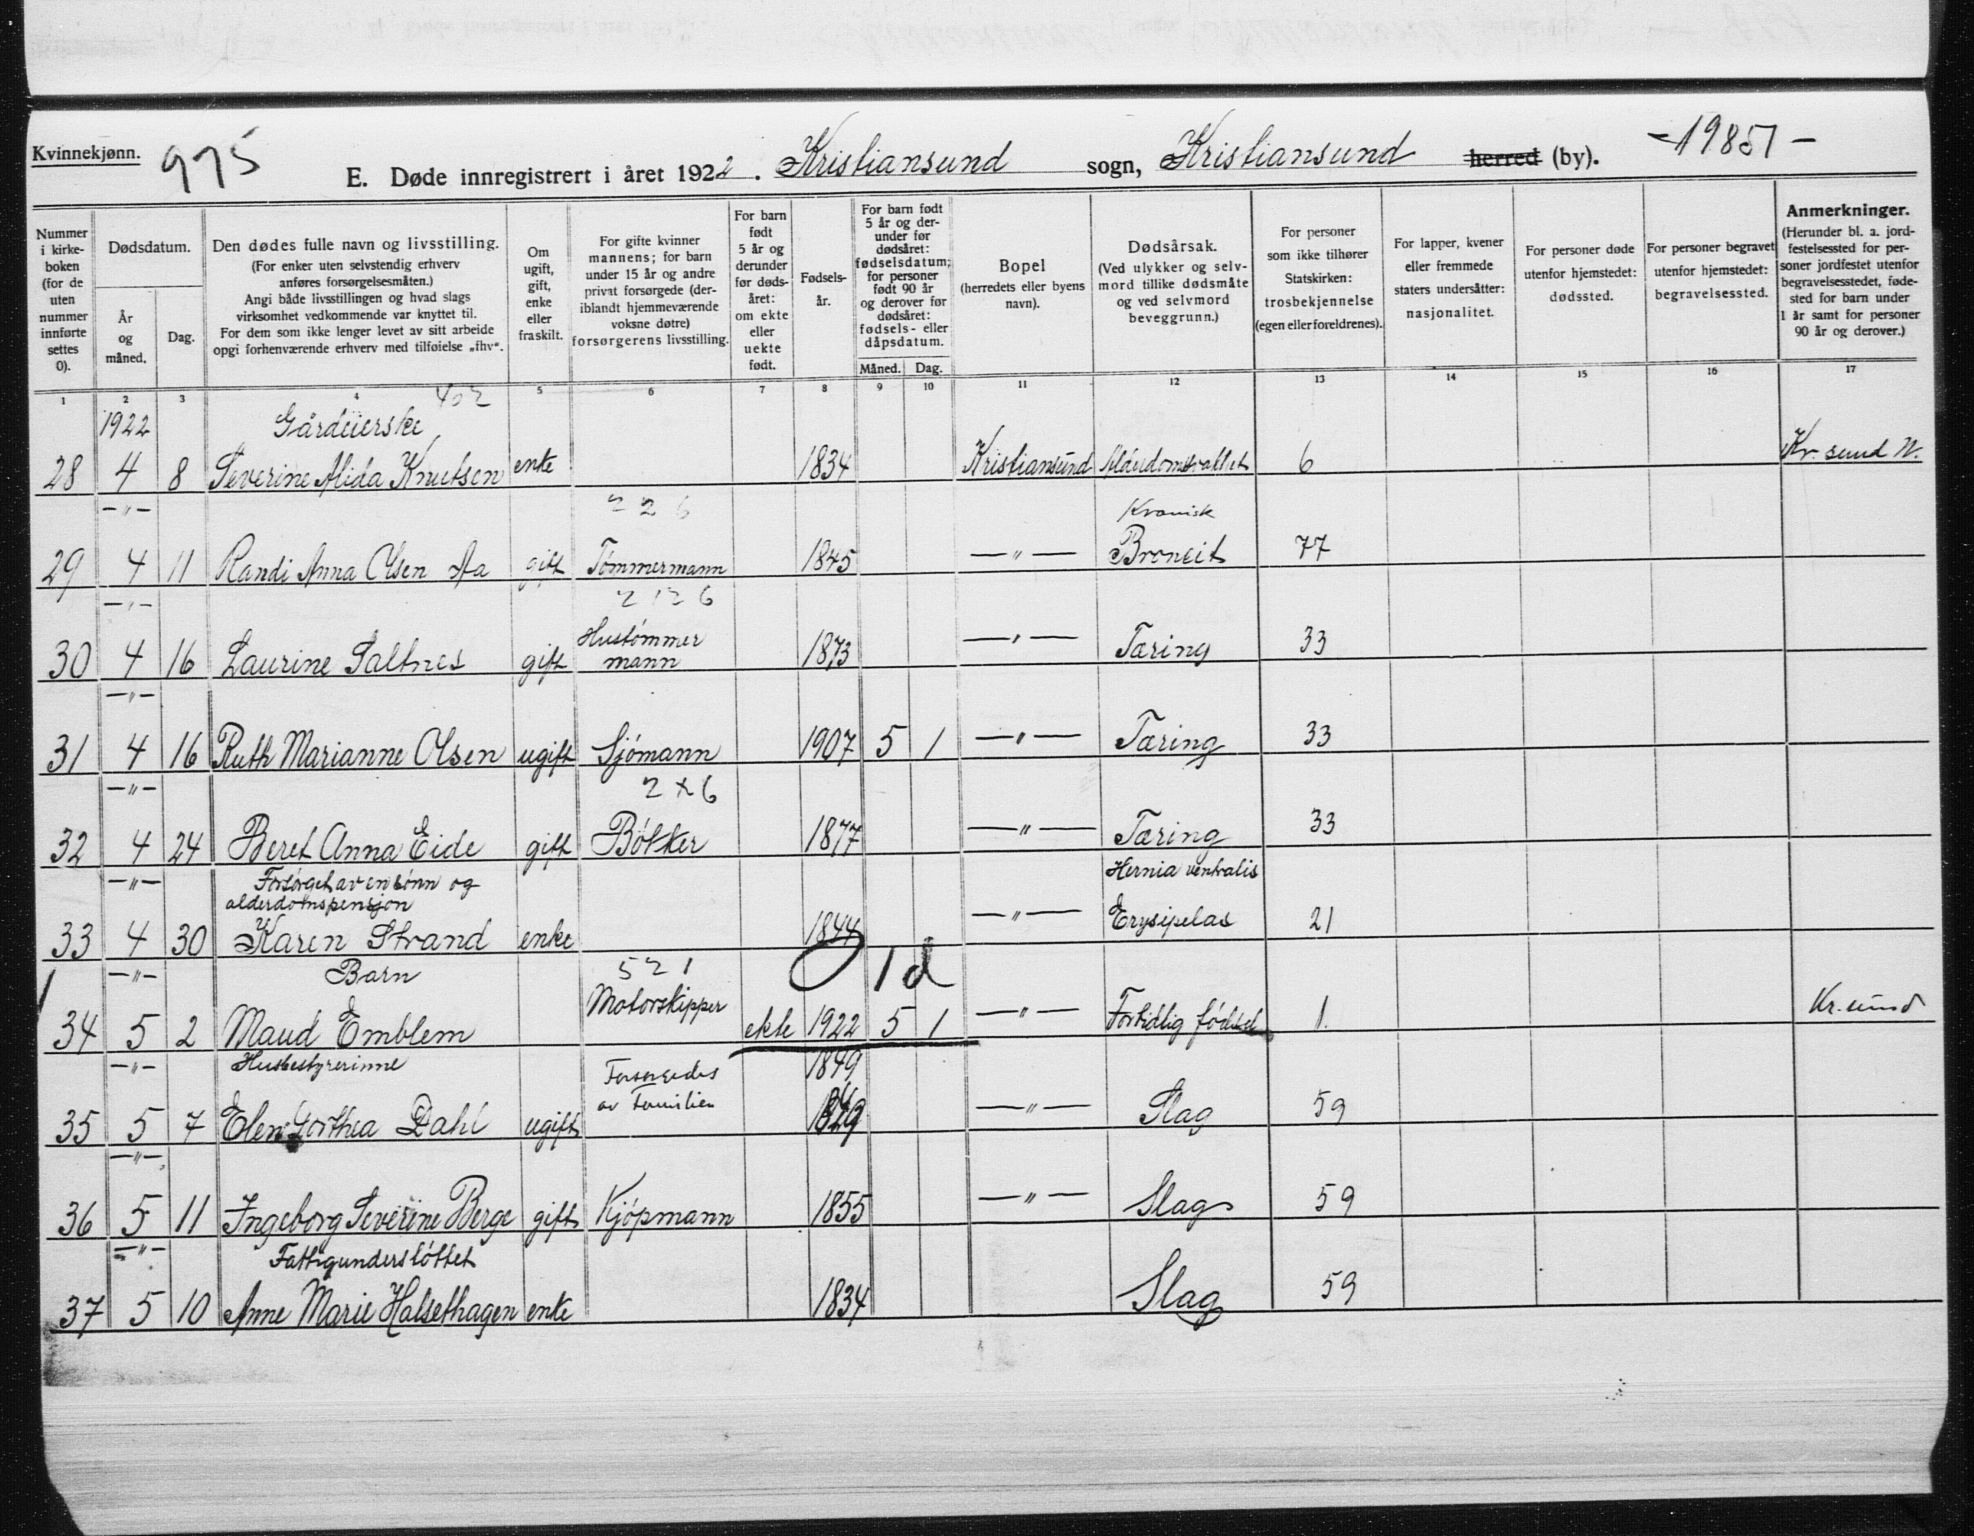 Kvinnekjønn.
975
E. Døde innregistrert i året 1922. Kristiansund sogn, Kristiansund herred (by).
-19851-
Nummer i kirkeboken (for de uten nummer innførte settes 0).
Dødsdatum.
År og måned.
Dag.
Den dødes fulle navn og livsstilling.
(For enker uten selvstendig erhverv anføres forsørgelsesmåten.)
Angi både livsstillingen og hvad slags virksomhet vedkommende var knyttet til.
For dem som ikke lenger levet av sitt arbeide opgi forhenværende erhverv med tilføielse „fhv“.
Om ugift, gift, enke eller fraskilt.
For gifte kvinner mannens; for barn under 15 år og andre privat forsørgede (deriblandt hjemmeværende voksne døtre) forsørgerens livsstilling.
For barn født 5 år og derunder før dødsåret: om ekte eller uekte født.
Fødselsår.
For barn født 5 år og derunder før dødsåret: fødselsdatum; for personer født 90 år og derover før dødsåret: fødsels- eller dåpsdatum.
Måned. Dag.
Bopel
(herredets eller byens navn).
Dødsårsak.
(Ved ulykker og selvmord tillike dødsmåte og ved selvmord beveggrunn.)
For personer som ikke tilhører Statskirken: trosbekjennelse (egen eller foreldrenes).
For lapper, kvener eller fremmede staters undersåtter: nasjonalitet.
For personer døde utenfor hjemstedet: dødssted.
For personer begravet utenfor hjemstedet: begravelsessted.
Anmerkninger.
(Herunder bl. a. jordfestelsessted for personer jordfestet utenfor begravelsesstedet, fødested for barn under 1 år samt for personer 90 år og derover.)
1 2 3 4 5 6 7 8 9 10 11 12 13 14 15 16 17
402
1922 Gårdeierske
28 4 8 Severine Alida Knutsen enke 1834 Kristiansund 6 Kr. sund N.
—"— 226 Kronisk
29 4 11 Randi Anna Olsen Aa gift Tømmermann 1845 —"— Broncit 77
—"— 2126
30 4 16 Laurine Saltnes gift Hustømmer mann 1873 —"— Tæring 33
—"—
31 4 16 Ruth Marianne Olsen ugift Sjømann 1907 5 1 —"— Tæring 33
—"— 2 x 6
32 4 24 Beret Anna Eide gift Bøkker 1877 —"— Tæring 33
—"— Forsørget av en sønn og alderdomspensjon Hernia ventralis
33 4 30 Karen Strand enke 1844 —"— Erysipelas 21
—"— Barn 521 1d
34 5 2 Maud Emblem Motorskipper ekte 1922 5 1 —"— Fortidlig fødsel 1. Kr.sund
—"— Husbestyrerinne Forsørgedes av Familien 1849
35 5 7 Elen Dorthea Dahl ugift —"— Slag 59
—"—
36 5 11 Ingeborg Severine Berge gift Kjøpmann 1855 —"— Slag 59
—"— Fattigunderstøttet
37 5 10 Anne Marie Halsethagen enke 1834 Slag 59